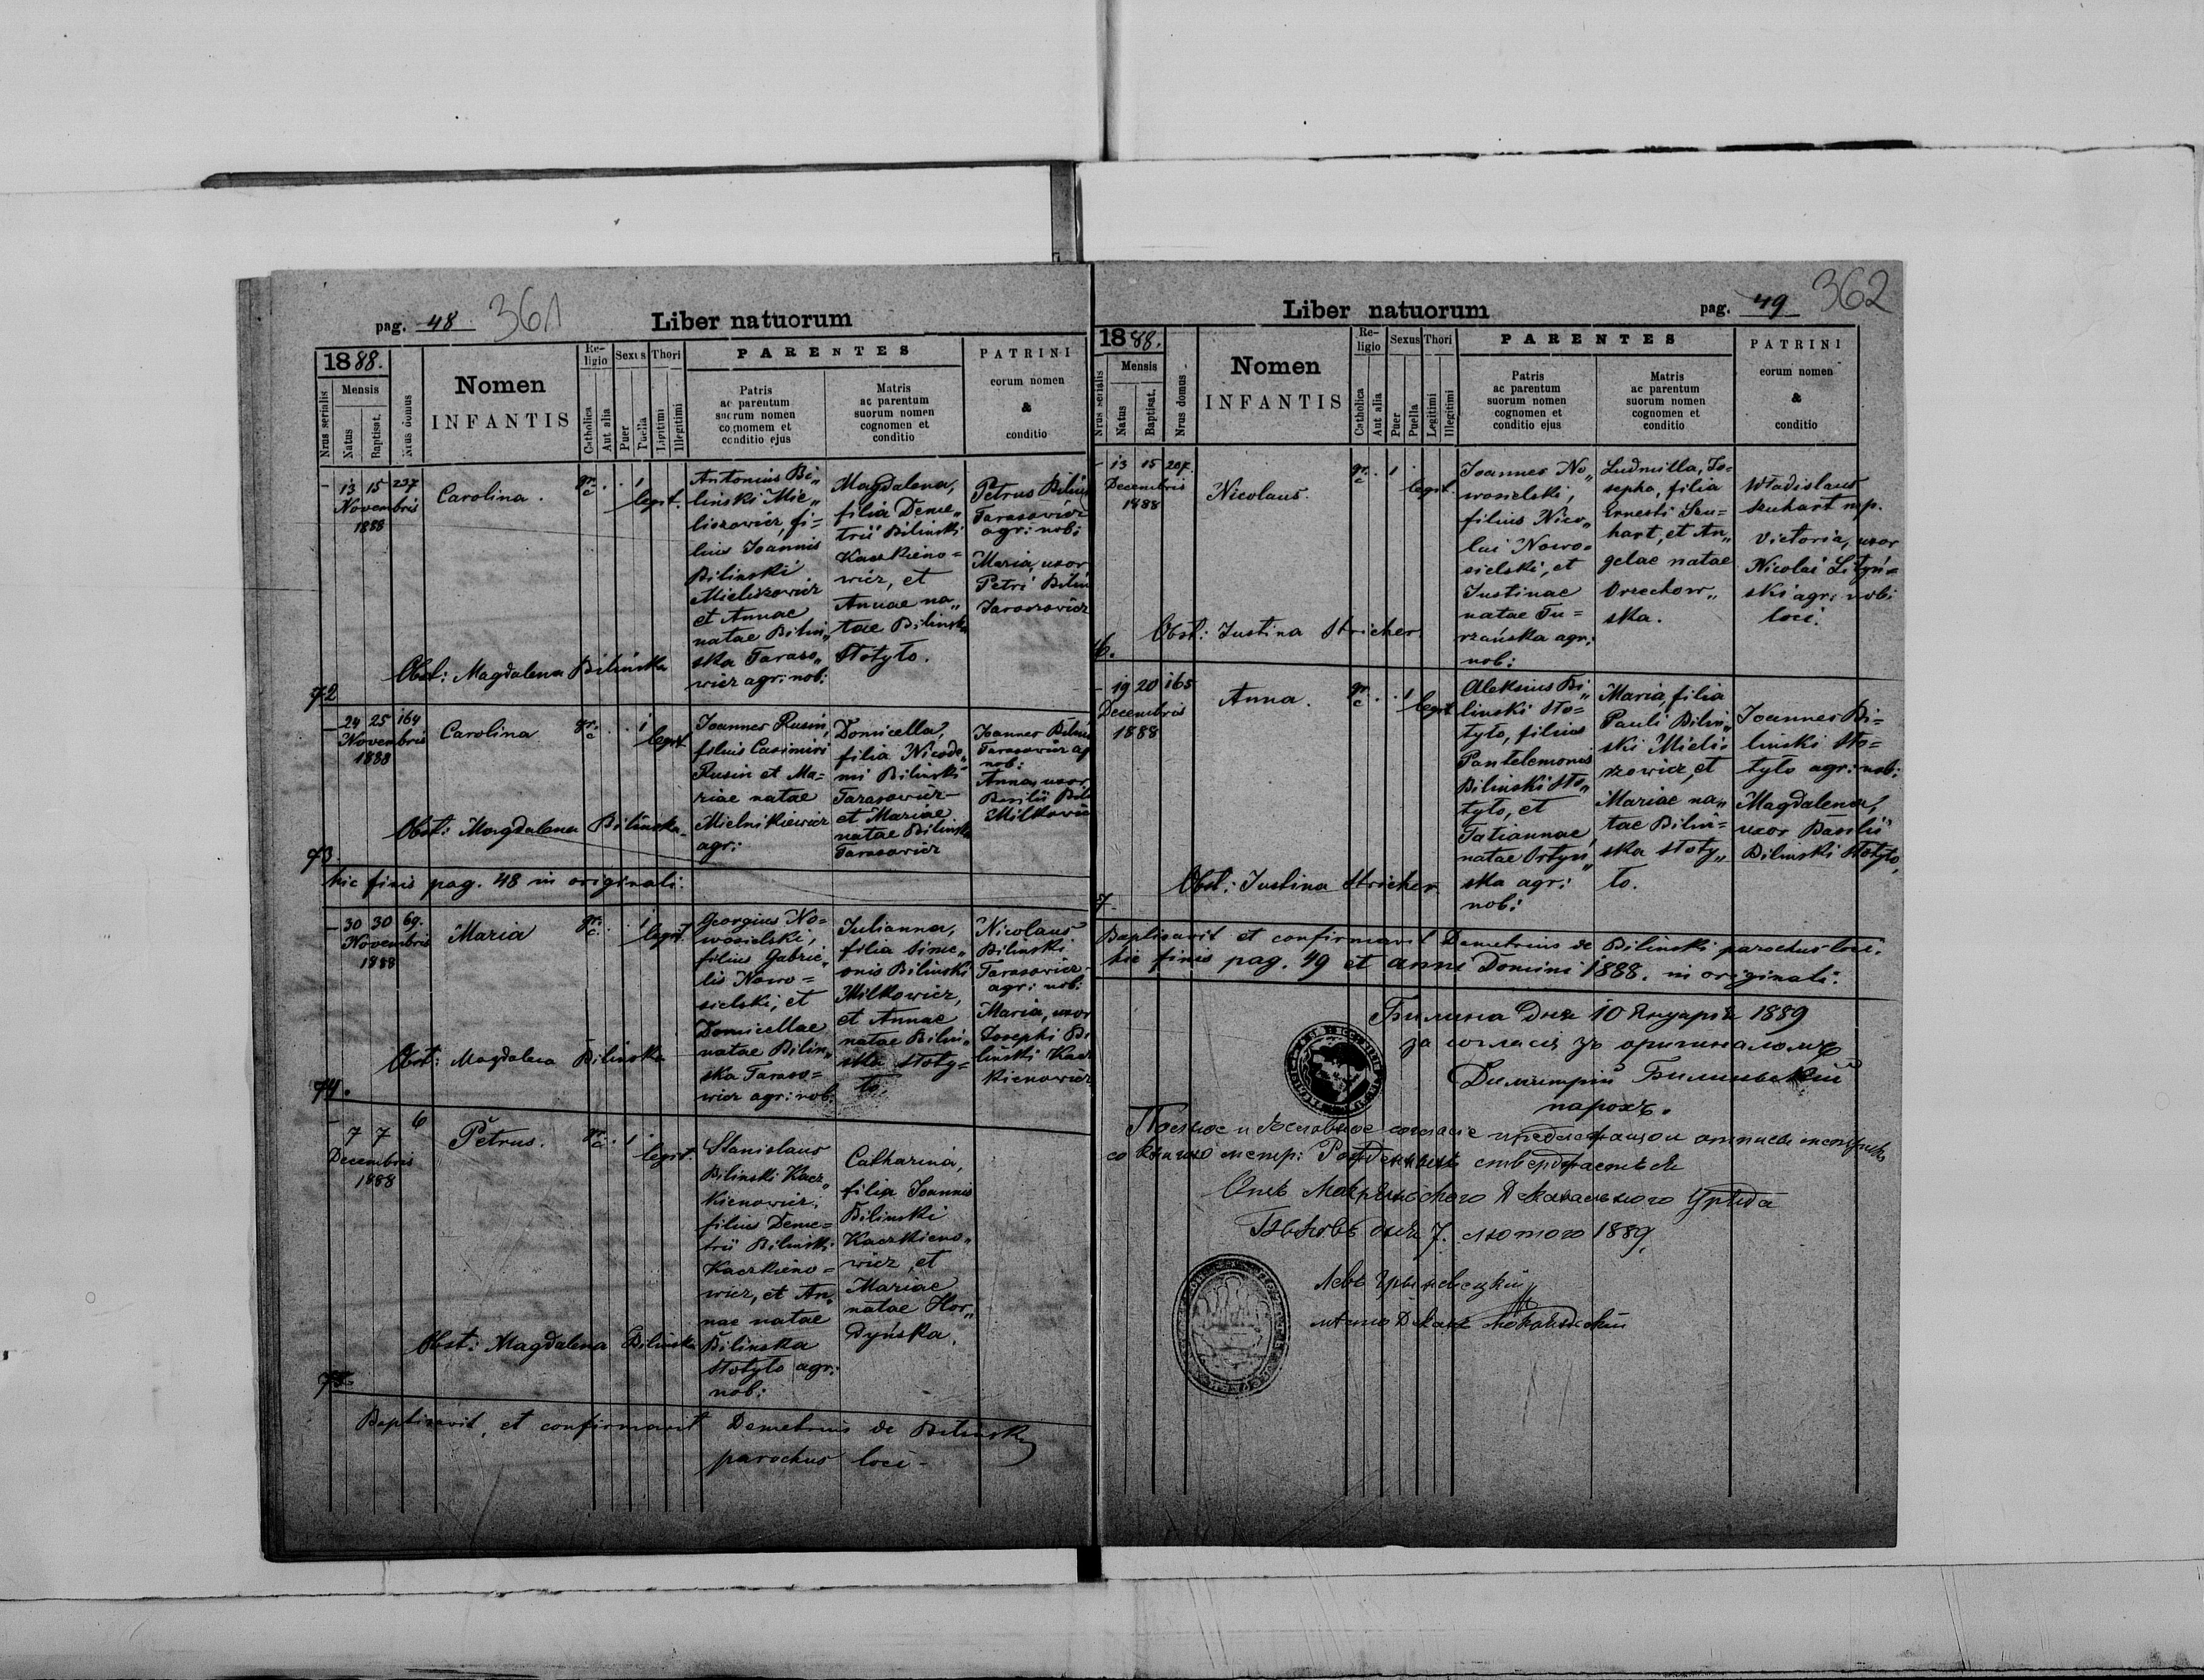 pag. 48 361
Liber natuorum
1888.
Nrus serialis
Mensis
Natus
Baptisat.
Nrus domus
Nomen
INFANTIS
Re-
ligio
Catholica
Aut alia
Sexus
Puer
Puella
Thori
Legitimi
Illegitimi
PARENTES
Patris
ac parentum
suorum nomen
cognomem et
conditio ejus
Matris
ac parentum
suorum nomen
cognomen et
conditio
PATRINI
eorum nomen
&
conditio
13 15 237
Novembris
1888
Carolina.
gr. c. . . 1
legit.
Antonius Bi„
linski Mie„
liszowicz, fi=
lius Joannis
Bilinski
Mieliszowicz
et Annae
natae Bilin„
ska Taraso„
wicz agr: nob:
Magdalena,
filia Deme„
trii Bilinski
Kaczkieno=
wicz, et
Annae na„
tae Bilinska
Stotyło.
Petrus Bilins
Tarasowicz
agr: nob:
Maria, uxor
Petri Bilin
Tarasowicz
Obst: Magdalena Bilińska
72
24 25 164
Novembris
1888
Carolina
gr. c. . . 1
legit
Joannes Rusin,
filius Casimiri
Rusin et Ma=
riae natae
Mielnikiewicz
agr:
Domicella,
filia Nicode„
mi Bilinski
Tarasowicz
et Mariae
natae Bilinska
Tarasowicz
Joannes Bilins
Tarasowicz ag
nob:
Anna, uxor
Basilii Bili
Milkowicz
Obst: Magdalena Bilinska
73.
hic finis pag. 48 in originali:
30 30 69.
Novembris
1888
Maria
gr. c. . . 1
legit.
Georgius No=
wosielski,
filius Gabrie„
lis Nowo=
sielski, et
Domicellae
natae Bilin„
ska Taraso=
wicz agr: nob:
Julianna,
filia Sime„
onis Bilinski
Milkowicz,
et Annae
natae Bilin„
ska Stoty=
ło.
Nicolaus
Bilinski
Tarasowicz
agr: nob:
Maria, uxor
Josephi Bi
linski Kacz
kienowicz
Obst: Magdalena Bilinska
74.
7 7 6
Decembris
1888
Petrus.
gr. c. . 1 .
legit.
Stanislaus
Bilinski Kacz„
kienowicz,
filius Deme=
trii Bilinski
Kaczkieno=
wicz, et An„
nae natae
Bilinska
Stotyło agr:
nob:
Catharina,
filia Joannis
Bilinski
Kaczkieno„
wicz, et
Mariae
natae Hor„
dyńska.
Obst: Magdalena Bilinska
75.
Baptisavit, et confirmavit Demetrius de Bilinski
parochus loci -
Liber natuorum
pag. 49 362
1888.
Nrus serialis
Mensis
Natus
Baptisat.
Nrus domus
Nomen
INFANTIS
Re-
ligio
Catholica
Aut alia
Sexus
Puer
Puella
Thori
Legitimi
Illegitimi
PARENTES
Patris
ac parentum
suorum nomen
cognomen et
conditio ejus
Matris
ac parentum
suorum nomen
cognomen et
conditio
PATRINI
eorum nomen
&
conditio
13 15 207.
Decembris
1888
Nicolaus.
gr. c. . 1 .
legit.
Joannes No„
wosielski,
filius Nico„
lai Nowo=
sielski, et
Justinae
natae Tu=
rzańska agr:
nob:
Ludmilla, Jo=
sepha, filia
Ernesti Szu=
hart, et An„
gelae natae
Orzechow„
ska.
Władislaus
Szuhart mp.
Victoria, uxor
Nicolai Lityń=
ski agr: nob:
loci.
Obst: Justina Stricher
6.
19 20 165
Decembris
1888
Anna.
gr. c. . . 1
legit
Aleksius Bi„
linski Sto=
tyło, filius
Pantelemonis
Bilinski Sto„
tyło, et
Tatiannae
natae Ortyń„
ska agr:
nob:
Maria, filia
Pauli Bilin„
ski Mieli=
szowicz, et
Mariae na„
tae Bilin=
ska Stoty„
ło.
Joannes Bi=
linski Sto=
tyło agr: nob:
Magdalena,
uxor Basilii
Bilinski Stotyło,
Obst: Justina Stricher
7.
Baptisavit et confirmavit Demetrius de Bilinski parochus loci.
hic finis pag. 49 et anni Domini 1888. in originali:
Билина дня 10 Януарія 1889
за согласія зъ оригиналомъ
Димитрій Билиньскій
парохъ.
7. лютого 1889.